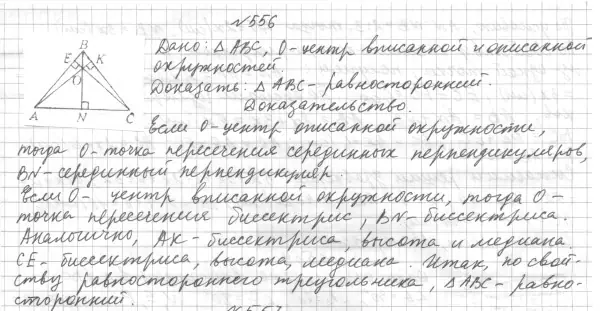 №556
B
E K
O
A N C
Дано: △ABC, O-центр вписанной и описанной
окружностей.
Доказать: △ABC- равносторонний.
Доказательство.
Если O-центр описанной окружности,
тогда O-точка пересечения серединных перпендикуляров,
BN-серединный перпендикуляр.
Если O- центр вписанной окружности, тогда O-
точка пересечения биссектрис, BN-биссектриса.
Аналогично, AK- биссектриса, высота и медиана,
CE- биссектриса, высота, медиана. Итак, по свой-
ству равностороннего треугольника, △ABC- равно-
сторонний.